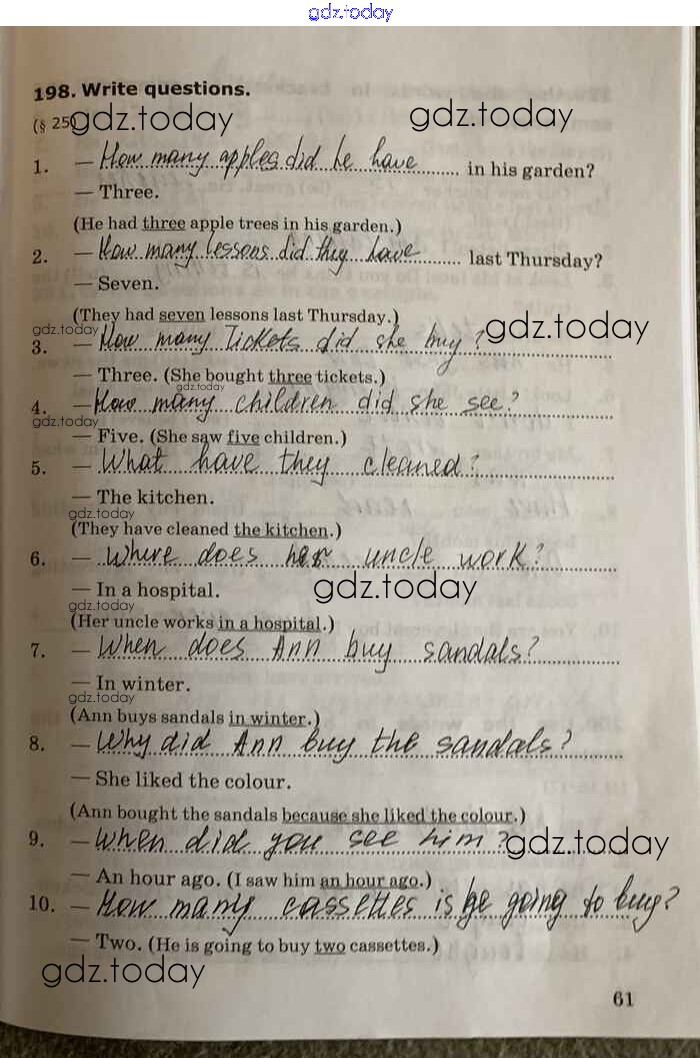 gdz.today
198. Write questions.
(§ 25) gdz.today gdz.today
1. — How many apples did he have in his garden?
— Three.
(He had three apple trees in his garden.)
2. — How many lessons did they have last Thursday?
— Seven.
(They had seven lessons last Thursday.)
gdz.today gdz.today
3. — How many tickets did she buy?
— Three. (She bought three tickets.)
gdz.today
4. — How many children did she see?
gdz.today
— Five. (She saw five children.)
5. — What have they cleaned?
— The kitchen.
gdz.today
(They have cleaned the kitchen.)
6. — Where does her uncle work?
— In a hospital. gdz.today
gdz.today
(Her uncle works in a hospital.)
7. — When does Ann buy sandals?
— In winter.
gdz.today
(Ann buys sandals in winter.)
8. — Why did Ann buy the sandals?
— She liked the colour.
(Ann bought the sandals because she liked the colour.)
9. — When did you see him? gdz.today
— An hour ago. (I saw him an hour ago.)
10. — How many cassettes is he going to buy?
— Two. (He is going to buy two cassettes.)
gdz.today
61